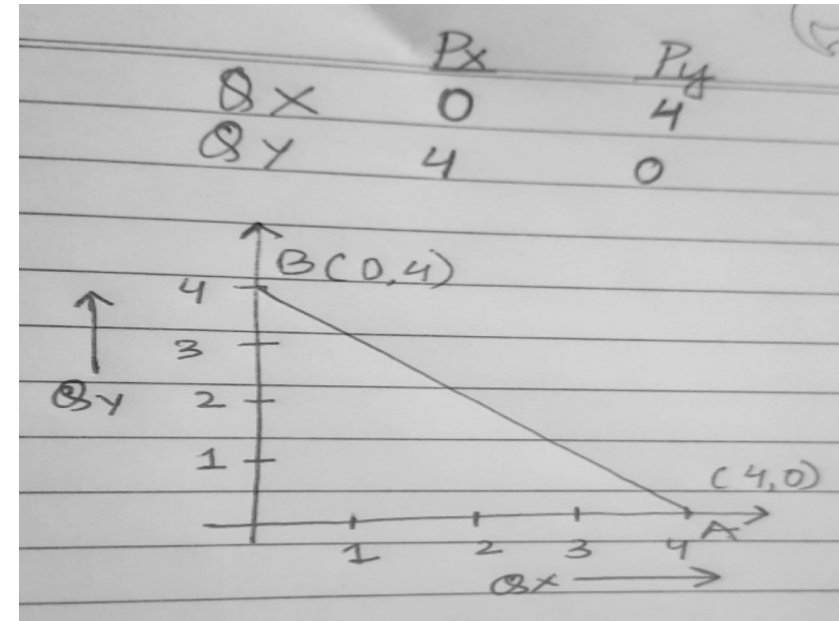 Px Py
QX 0 4
QY 4 0
B(0,4)
4
3
QY 2
1
(4,0)
1 2 3 4 A
QX